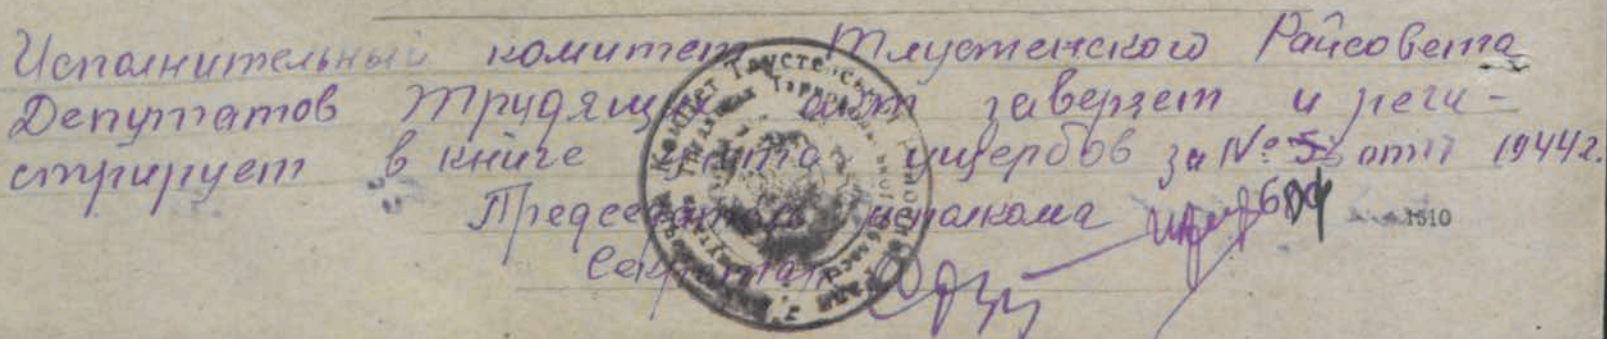 Исполнительный комитет Тлустенского Райсовета
Депутатов Трудящихся акт заверяет и реги-
стрирует в книге учета ущербов за № 5 от 1944 г.
Председатель исполкома
604 1510
Секретарь